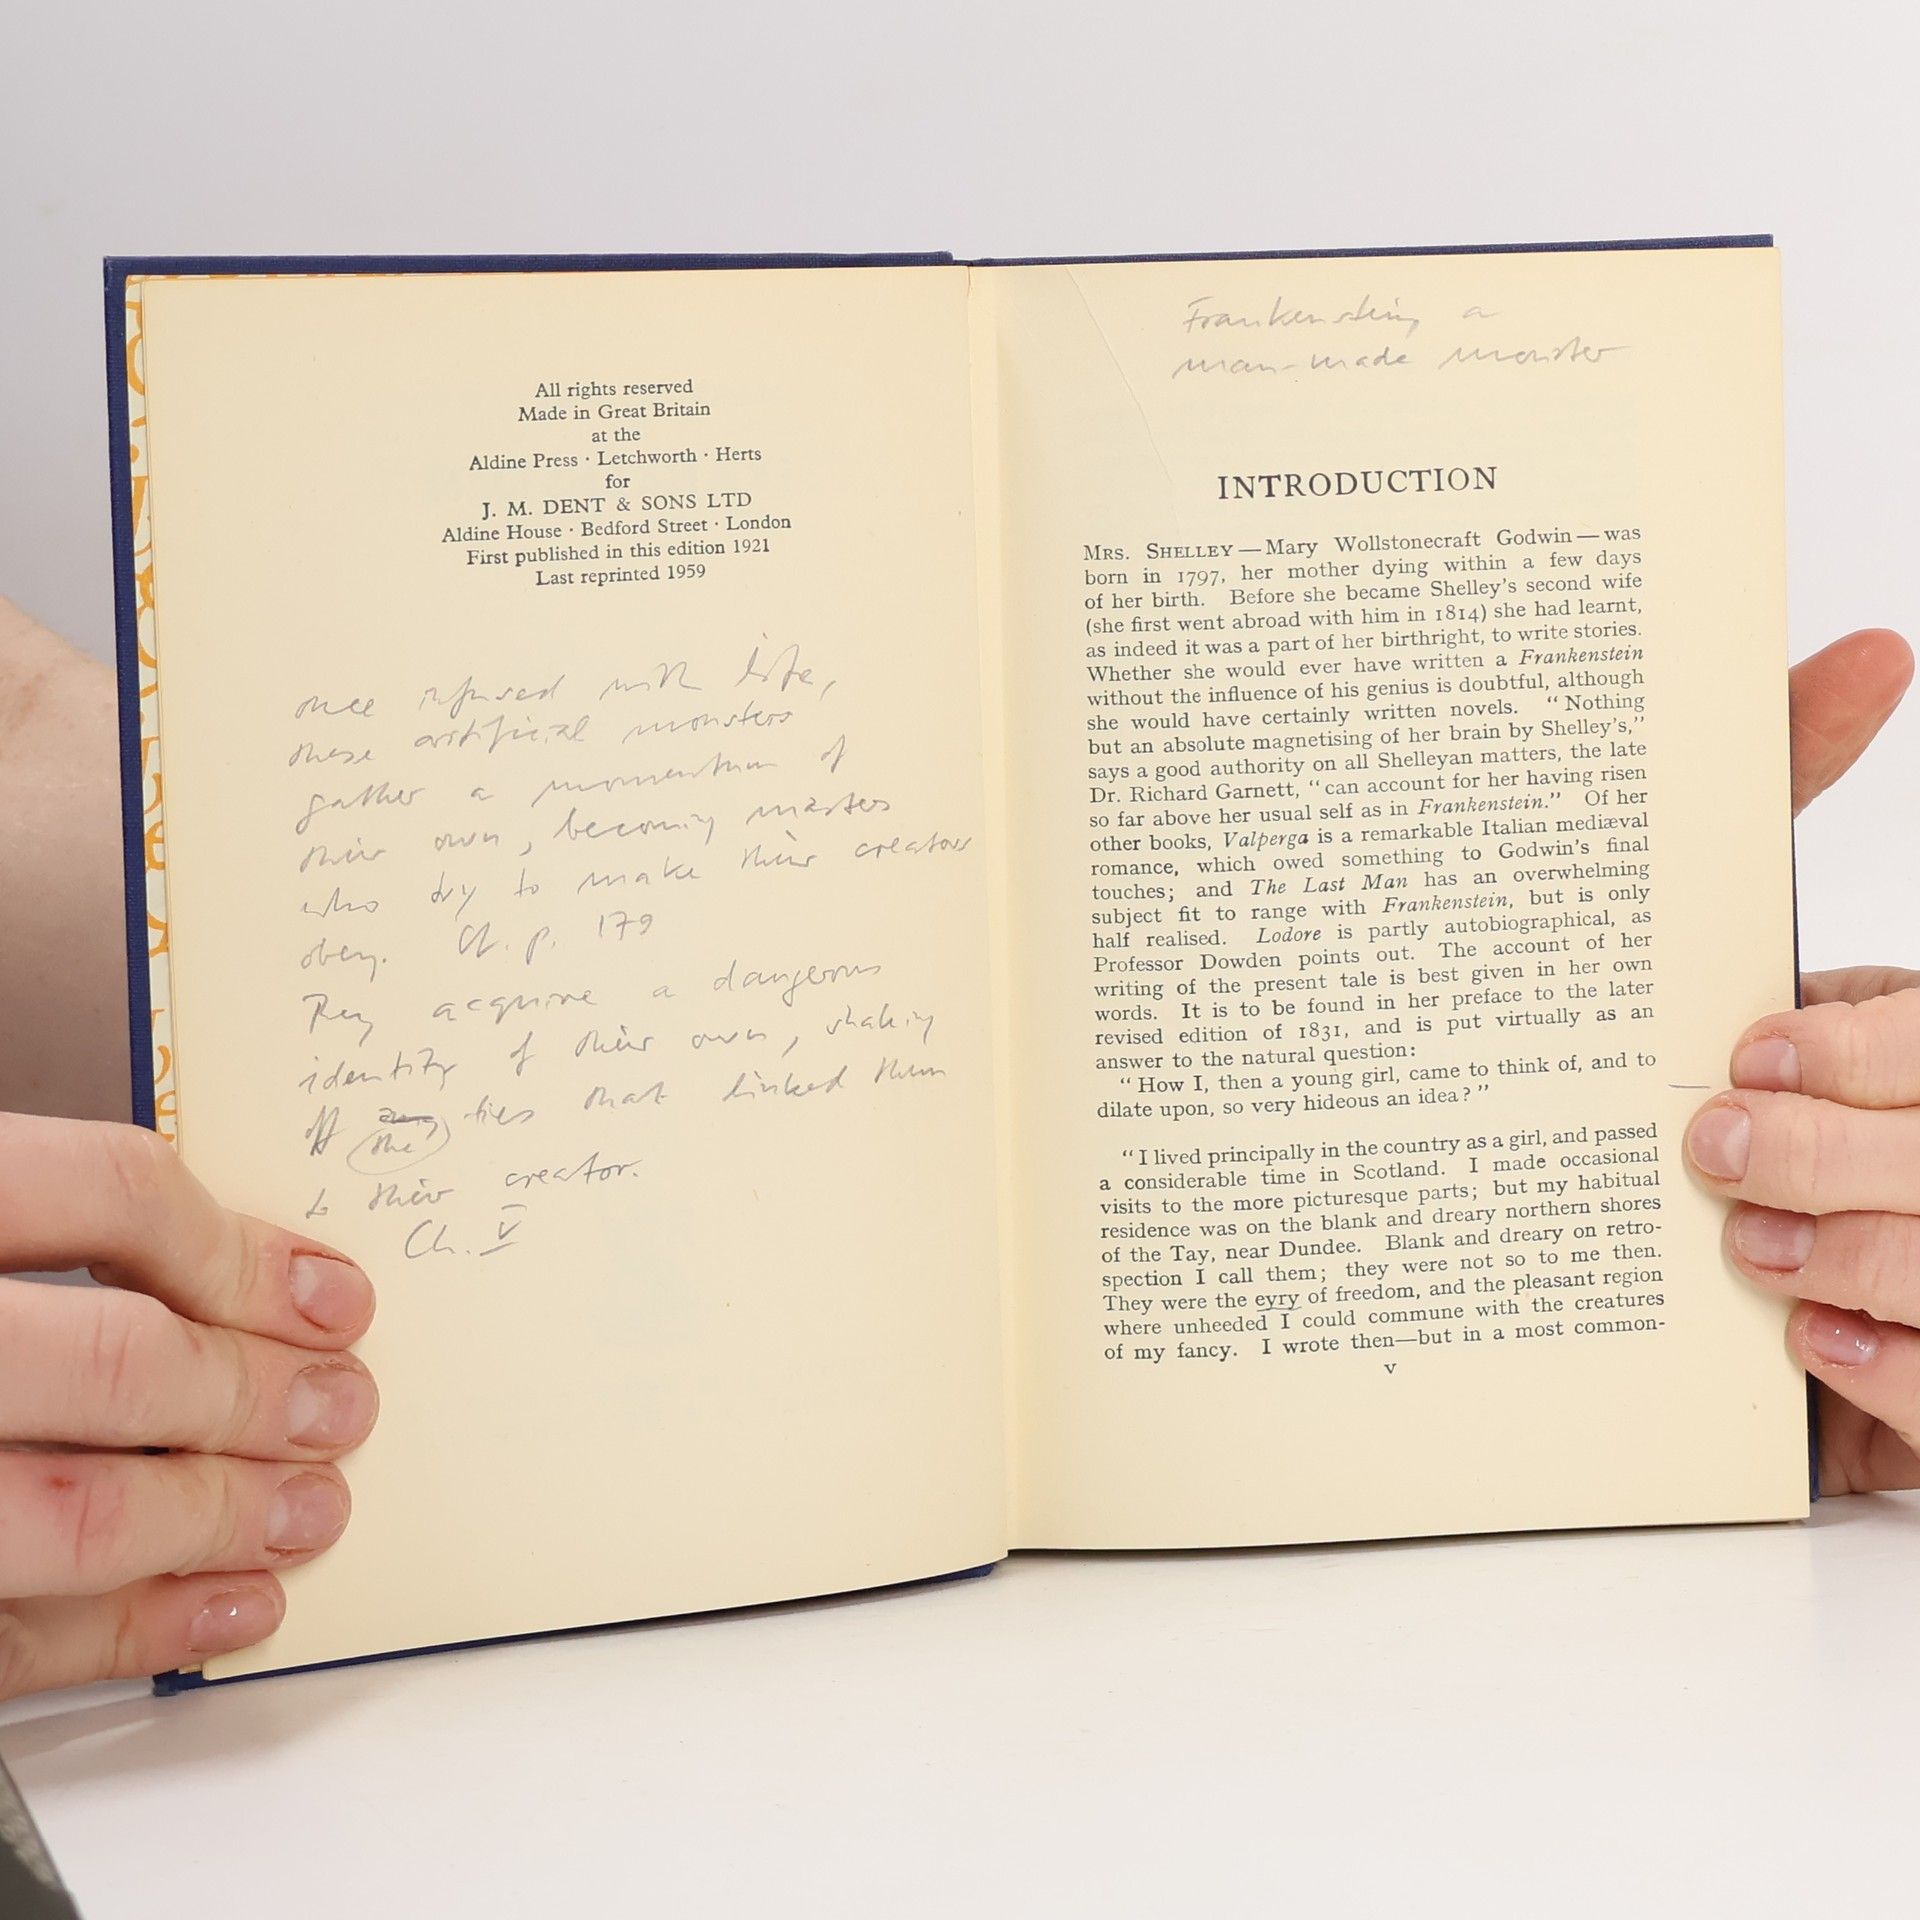 All rights reserved
Made in Great Britain
at the
Aldine Press · Letchworth · Herts
for
J. M. DENT & SONS LTD
Aldine House · Bedford Street · London
First published in this edition 1921
Last reprinted 1959
once infused with life,
these artificial monsters
gather a momentum of
their own, becoming masters
who try to make their creators
obey. Cf. p. 179
They acquire a dangerous
identity of their own, shaking
off the ties that linked them
to their creator.
Ch. V
Frankenstein, a
man-made monster
INTRODUCTION
MRS. SHELLEY — Mary Wollstonecraft Godwin — was
born in 1797, her mother dying within a few days
of her birth. Before she became Shelley's second wife
(she first went abroad with him in 1814) she had learnt,
as indeed it was a part of her birthright, to write stories.
Whether she would ever have written a Frankenstein
without the influence of his genius is doubtful, although
she would have certainly written novels. "Nothing
but an absolute magnetising of her brain by Shelley's,"
says a good authority on all Shelleyan matters, the late
Dr. Richard Garnett, "can account for her having risen
so far above her usual self as in Frankenstein." Of her
other books, Valperga is a remarkable Italian mediæval
romance, which owed something to Godwin's final
touches; and The Last Man has an overwhelming
subject fit to range with Frankenstein, but is only
half realised. Lodore is partly autobiographical, as
Professor Dowden points out. The account of her
writing of the present tale is best given in her own
words. It is to be found in her preface to the later
revised edition of 1831, and is put virtually as an
answer to the natural question:
"How I, then a young girl, came to think of, and to
dilate upon, so very hideous an idea?"
"I lived principally in the country as a girl, and passed
a considerable time in Scotland. I made occasional
visits to the more picturesque parts; but my habitual
residence was on the blank and dreary northern shores
of the Tay, near Dundee. Blank and dreary on retro-
spection I call them; they were not so to me then.
They were the eyry of freedom, and the pleasant region
where unheeded I could commune with the creatures
of my fancy. I wrote then—but in a most common-
v